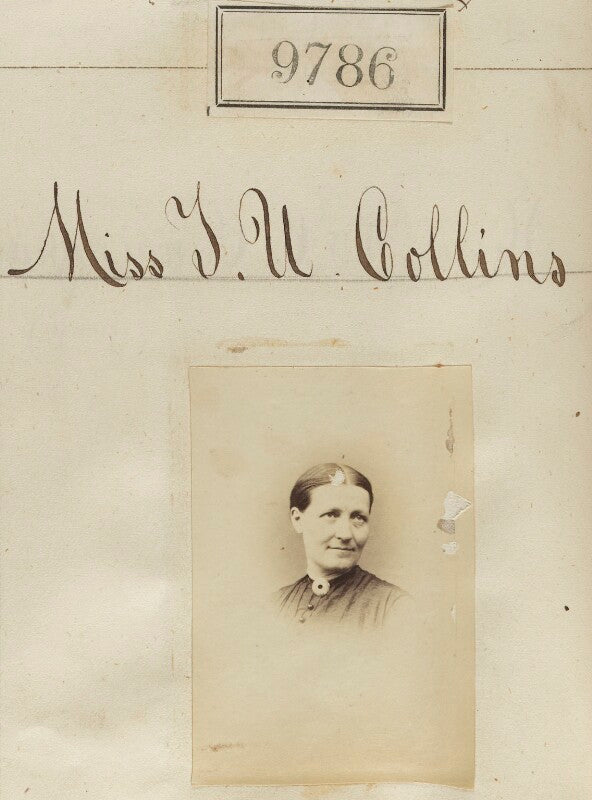 9786
Miss T. U. Collins